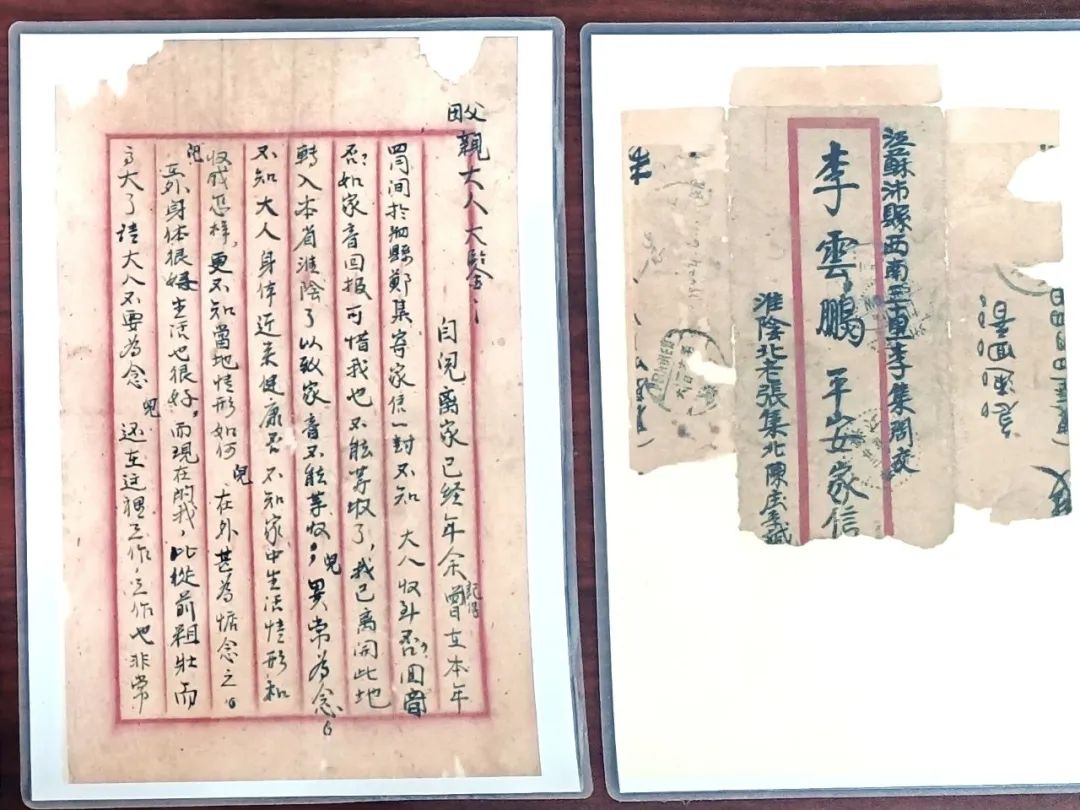 父親大人大鉴：
自兒离家已经年余記得曾在本年
間於泗縣鄭集寄家信一封不知 大人收到否，回音
否，如家音回报可惜我也不能等收了，我已离開此地
轉入本省淮陰了以致家音不能等收，兒異常为念。
不知大人身体近来健康否 不知家中生活情形和
收成怎样，更不知當地情形如何 兒在外甚為惦念之。
兒在外身体很好生活也很好，而現在的我，比從前粗壯而
高大了請大人不要為念 兒还在这裡工作，工作也非常
江蘇沛縣西南李集周交
李雲鵬 平安家信
淮陰北老張集北陳庄